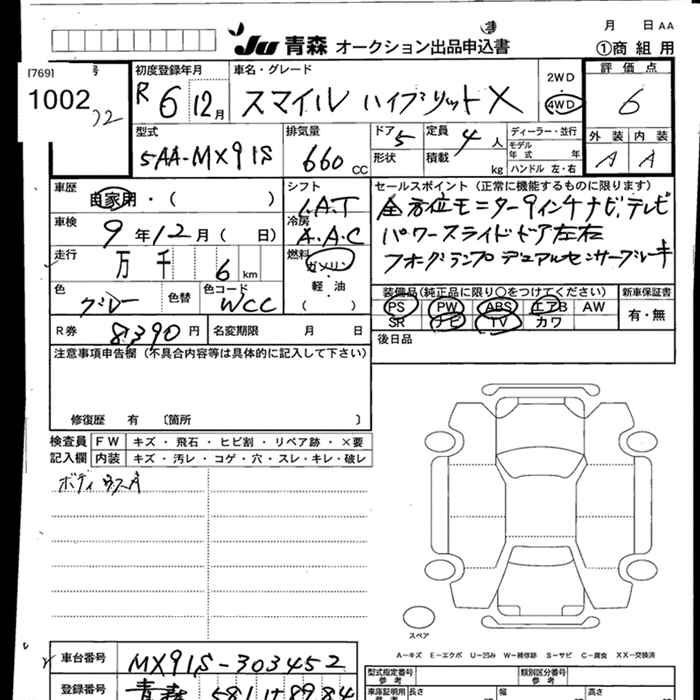 月 日 AA
Ju 青森 オークション出品申込書 ①商組用
[769] 号
1002
初度登録年月 車名・グレード 2WD 4WD 評価点
R 6 12月 スマイル ハイブリット X 6
型式 排気量 ドア 定員 ディーラー・並行 外装 内装
5AA-MX91S 660cc 5 4人 A A
形状 積載 kg モデル年式 年式 ハンドル 左・右
車歴 自家用・( ) シフト セールスポイント(正常に機能するものに限ります)
I.A.T
車検 9年12月( 日) 冷房 A.A.C
全方位モニター 9インチナビ.テレビ
パワースライドドア左右
フォグランプ デュアルセンサーブレーキ
走行 万 千 6 km 燃料 ガソリン・軽油 ( )
色 グレー 色替 色コード WCC
装備品(純正品に限り○をつけてください) 新車保証書
PS PW ABS エアB AW 有・無
SR ナビ TV カワ
R券 8390円 名変期限 月 日 後日品
注意事項申告欄(不具合内容等は具体的に記入して下さい)
修復歴 有 〔箇所 〕
検査員記入欄 FW キズ・飛石・ヒビ割・リペア跡・×要
内装 キズ・汚レ・コゲ・穴・スレ・キレ・破レ
ボディ ウスA
スペア
A-キズ E-エクボ U-凹み W-補修跡 S-サビ C-腐食 XX-交換済
車台番号 MX91S-303452
登録番号 青森 581 け 8984
型式指定番号 類別区分番号
車庫証明用参考 長さ 幅 高さ